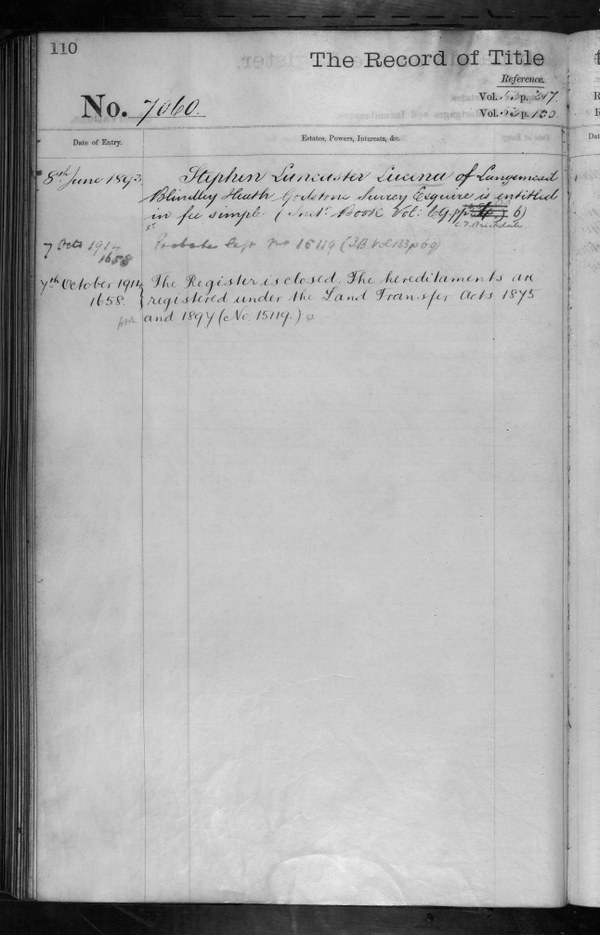 110
The Record of Title
Reference.
No. 7060.
Vol. p. 247.
Vol. p. 133
Date of Entry.
Estates, Powers, Interests, &c.
8th June 1893
Stephen Lancaster Lucena of
Blindley Heath Godstone Surrey Esquire is entitled
in fee simple (Inst: Book Vol: 69 pp 6)
7 Octr 1914
1658
No 15119 (IB Vol 133 p 69)
7th October 1914
1658
The Register is closed. The hereditaments are
registered under the Land Transfer Acts 1875
and 1897 (No. 15119.)